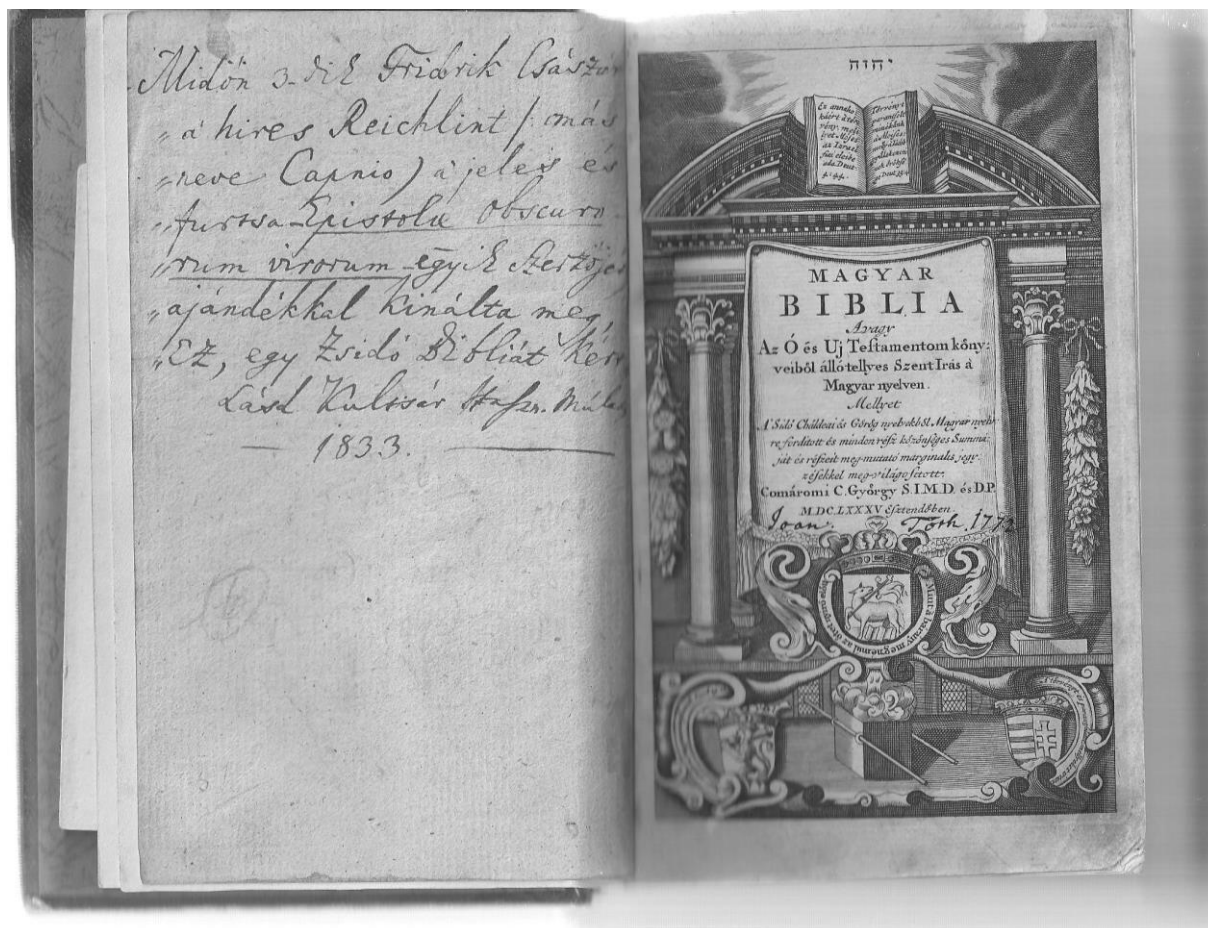 Midőn 3-dik Fridrik Császár
„a hires Reichlint /: más
„neve Capnio) a jeles és
„furtsa Epistolæ obscuro-
„rum virorum egyik Szerzőjét
„ajándékkal kinálta meg,
„Ez, egy Zsidó Bibliát kért
Lásd Kultsár Haszn. Mulat
1833.
יהוה
MAGYAR
BIBLIA
Avagy
Az Ó és Uj Testamentom kőny:
veiből álló tellyes Szent Irás à
Magyar nyelven.
Mellyet
A' Sidó Cháldeai és Görög nyelvekből Magyar nyelv
re fordított és minden rész közönséges Summa:
ját és részeit meg-mutató marginalis jegy:
zésekkel meg-világosított.
Comáromi C. György S.I.M.D. és D.P.
M.DC.LXXXV esztendőben
Joan. Tóth. 1772
Mint a bárány megnémul az őtet nyírők előtt